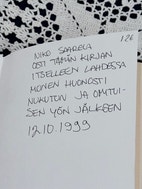 126
NIKO SAARELA
OSTI TÄMÄN KIRJAN
ITSELLEEN LAHDESSA
MONEN HUONOSTI
NUKUTUN JA OMITUI-
SEN YÖN JÄLKEEN
12.10.1999